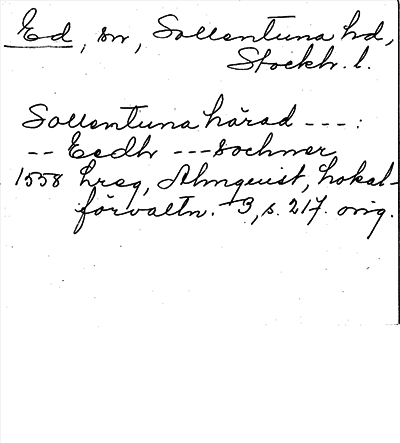 Ed, sn, Sollentuna hd,
Stockh. l.
Sollentuna härad ---:
-- Eedh --- sochner
1558 hreg, Almquist, Lokal-
förvaltn. +3, s. 217. orig.